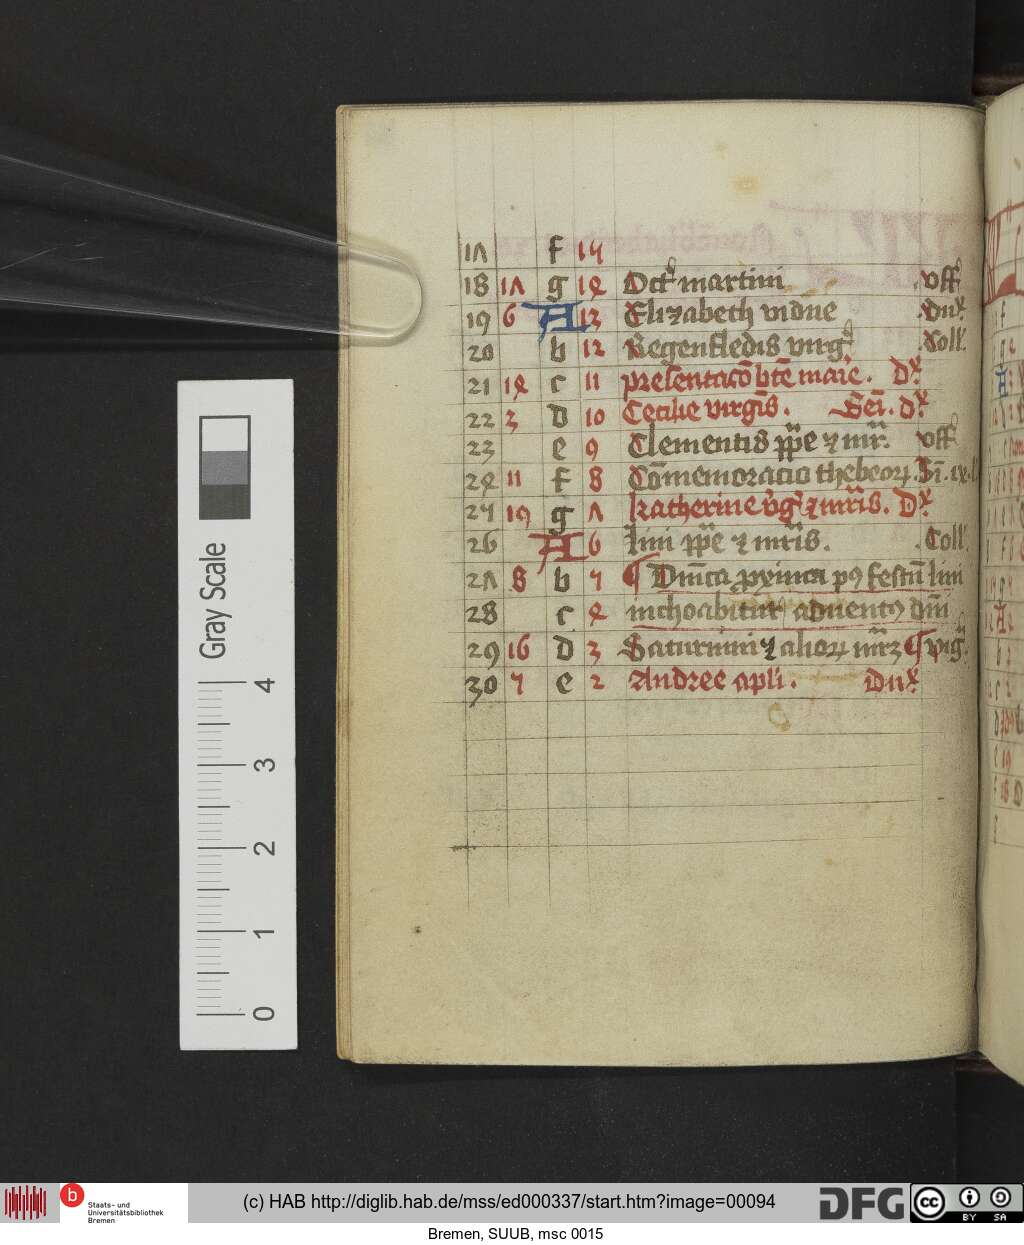 17 f 15
18 17 g 14 Oct martini Off
19 6 A 13 Elizabeth vidue Dux
20 b 12 Regenfledis virg Coll
21 14 c 11 presentacō btē maīe . Dx
22 3 D 10 Cecilie virgīs . Sēi . dx
23 e 9 Clementis ppē ⁊ mr̄ . Off
24 11 f 8 Cōmemoracio thebeoꝝ .
25 19 g 7 katherine v̄g ⁊ mr̄is . Dx
26 A 6 Lini ppē ⁊ mr̄is . Coll
27 8 b 5 ¶ Dn̄ica ꝓxima pꝰ festū lini
28 c 4 inchoabitur aduentꝰ dn̄i
29 16 D 3 Saturnini ⁊ alioꝝ mr̄ꝫ ¶ vig
30 5 e 2 Andree apli . Dux
Gray Scale
4
3
2
1
0
b Staats- und Universitätsbibliothek Bremen
(c) HAB http://diglib.hab.de/mss/ed000337/start.htm?image=00094
DFG
cc BY SA
Bremen, SUUB, msc 0015